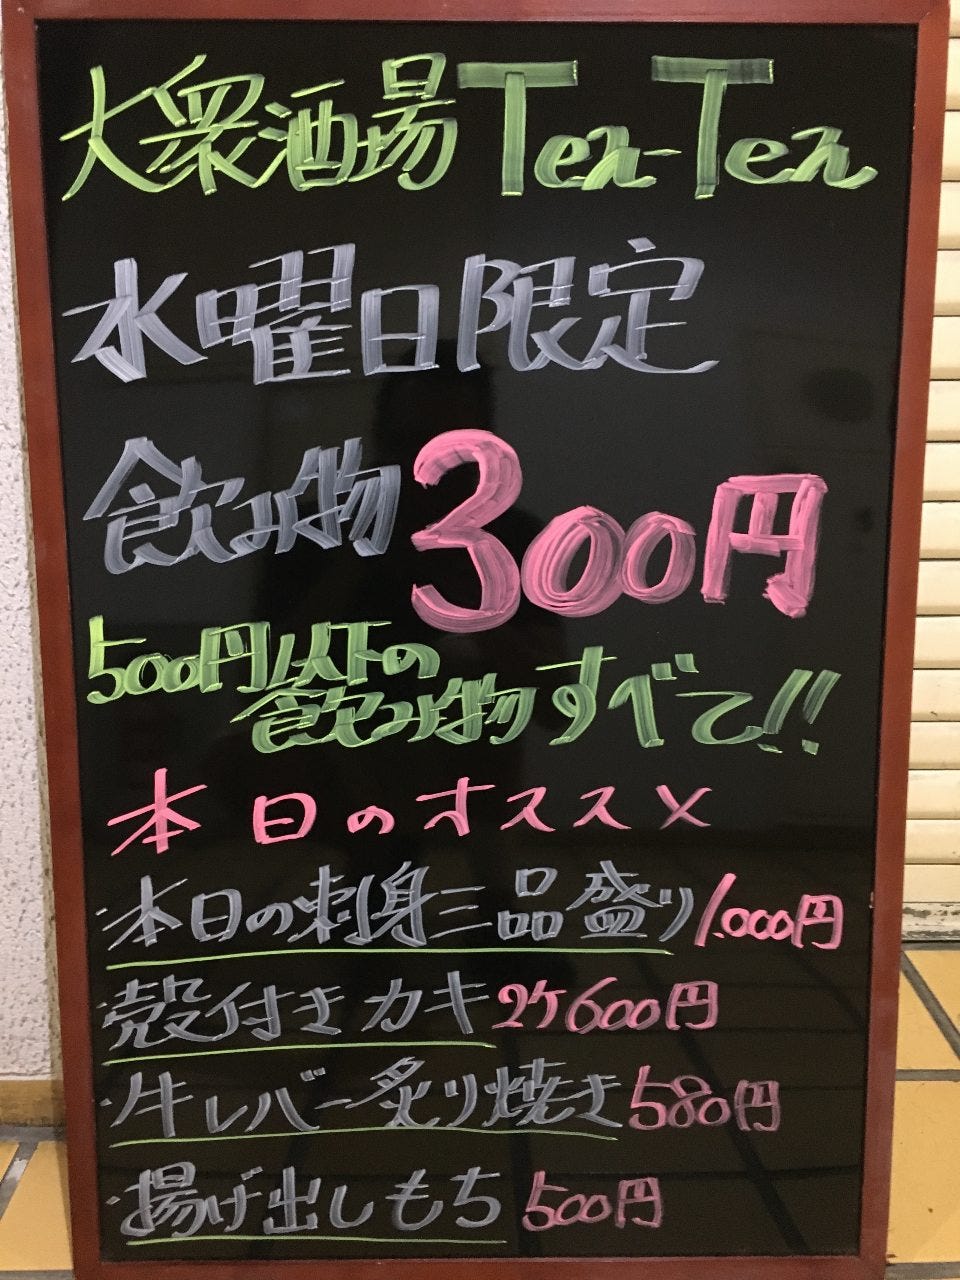 大衆酒場Ten-Ten
水曜日限定
飲み物300円
500円以下の
飲み物すべて!!
本日のオススメ
・本日の刺身三品盛り1.000円
・殻付きカキ2ケ600円
・牛レバー炙り焼き580円
・揚げ出しもち500円